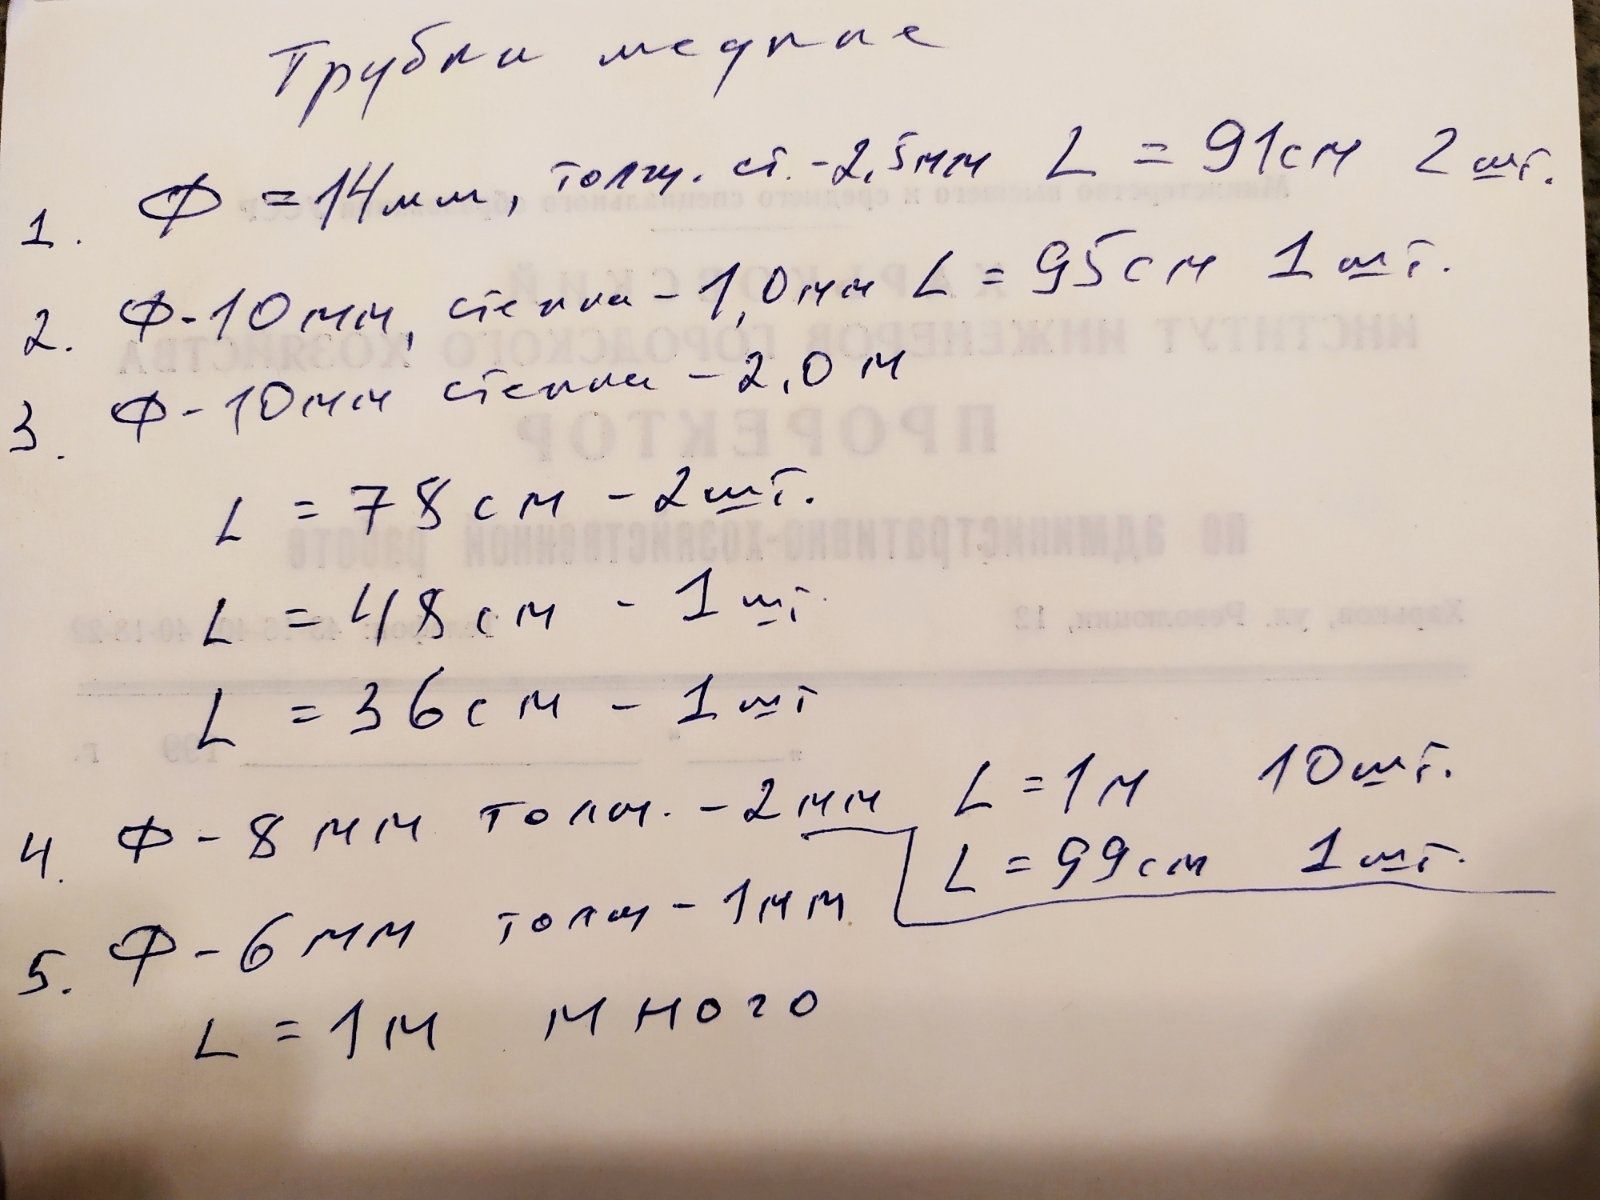 Трубки медные
1. Ф = 14мм, толщ. ст. - 2,5мм L = 91см 2 шт.
2. Ф - 10мм, стенка - 1,0мм L = 95см 1 шт.
3. Ф - 10мм стенка - 2,0м
L = 78см - 2шт.
L = 48см - 1шт.
L = 36см - 1шт
4. Ф - 8мм толщ. - 2мм L = 1м 10шт.
L = 99см 1шт.
5. Ф - 6мм толщ - 1мм
L = 1м много
Министерство высшего и среднего специального образования СССР
ХАРЬКОВСКИЙ
ИНСТИТУТ ИНЖЕНЕРОВ ГОРОДСКОГО ХОЗЯЙСТВА
ПРОРЕКТОР
по административно-хозяйственной работе
Харьков, ул. Революции, 12 40-18-22
199 г.